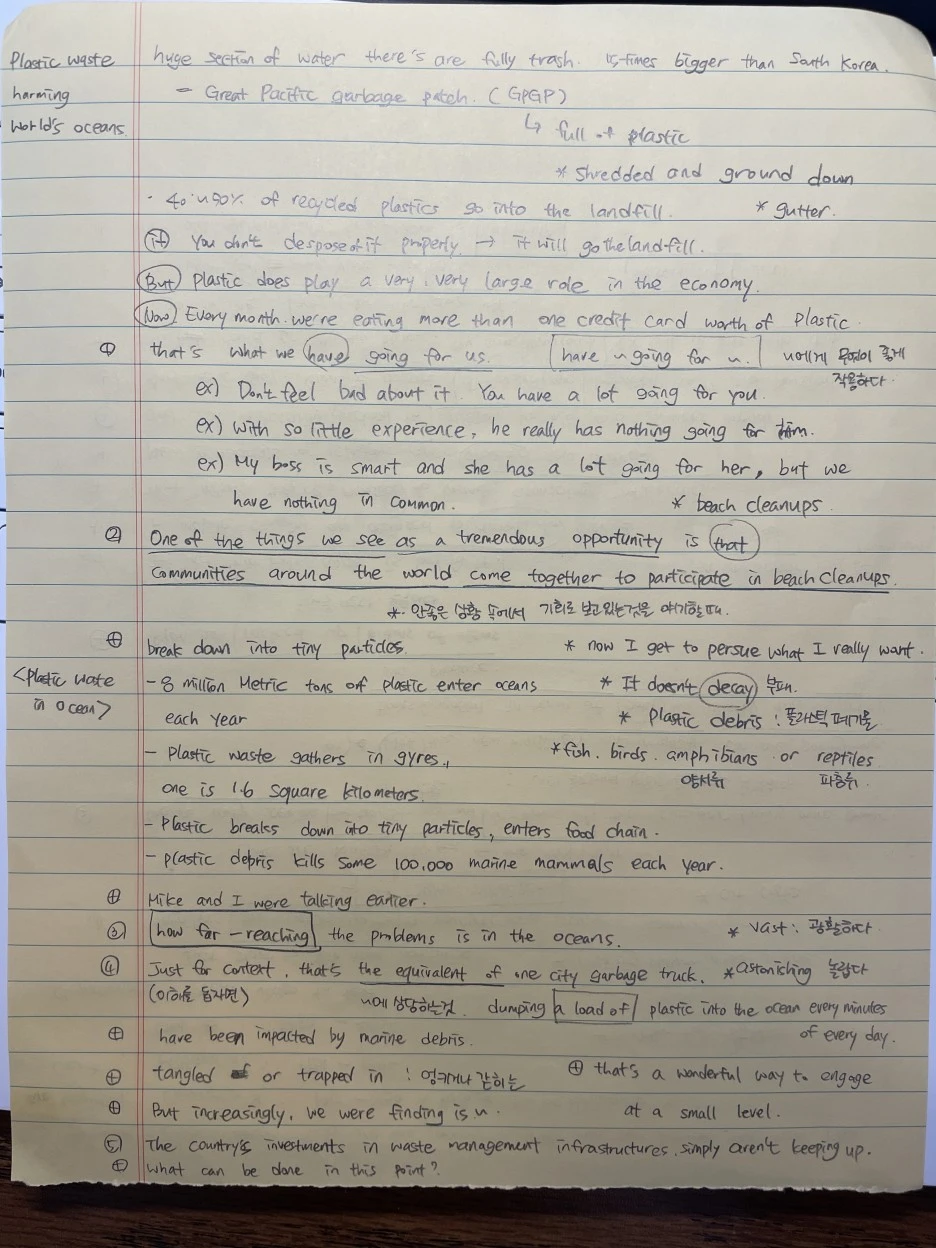 Plastic waste harming world's oceans.
huge section of water there's are fully trash. 15-times bigger than South Korea.
- Great Pacific garbage patch. (GPGP)
↳ full of plastic
* shredded and ground down
· 40~50% of recycled plastics go into the landfill. * gutter.
if You don't despose of it properly → it will go the landfill.
But Plastic does play a very, very large role in the economy.
Now Every month. we're eating more than one credit card worth of plastic.
① that's what we have going for us. have ~ going for ~. ~에게 무엇이 좋게
작용하다.
ex) Don't feel bad about it. You have a lot going for you.
ex) With so little experience, he really has nothing going for him.
ex) My boss is smart and she has a lot going for her, but we
have nothing in common. * beach cleanups.
② One of the things we see as a tremendous opportunity is that
communities around the world come together to participate in beach cleanups.
* 안좋은 상황 속에서 기회로 보고있는것을 얘기할 때.
⊕ break down into tiny particles. * now I get to persue what I really want.
<plastic waste in ocean>
- 8 million Metric tons of plastic enter oceans * It doesn't decay 부패.
each year * Plastic debris : 플라스틱 폐기물
- Plastic waste gathers in gyres., * fish. birds. amphibians or reptiles
양서류 파충류.
one is 1.6 square kilometers.
- Plastic breaks down into tiny particles, enters food chain.
- plastic debris kills some 100,000 marine mammals each year.
⊕ Mike and I were talking earlier.
③ how far-reaching the problems is in the oceans. * vast : 광활하다
④ Just for context, that's the equivalent of one city garbage truck. * astonishing 놀랍다
(이해를 돕자면) ~에 상당하는것. dumping a load of plastic into the ocean every minutes
of every day.
⊕ have been impacted by marine debris.
⊕ tangled or trapped in : 엉키거나 갇히는 ⊕ that's a wonderful way to engage
at a small level.
⊕ But increasingly, we were finding is ~.
⑤ The country's investments in waste management infrastructures. simply aren't keeping up.
⊕ What can be done in this point?